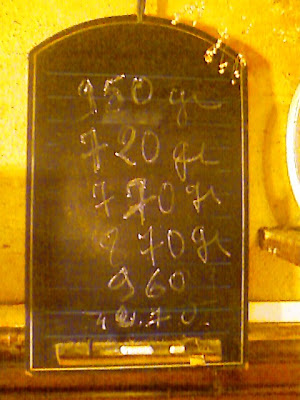 950 gr
720 gr
770 gr
870 gr
960
4270